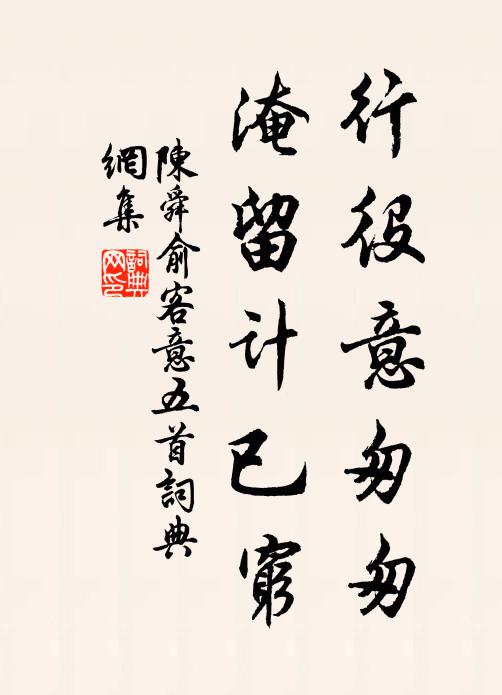 行役意匆匆
淹留计已窮
陳舜俞客意五首詞典
網集
詞典
网印